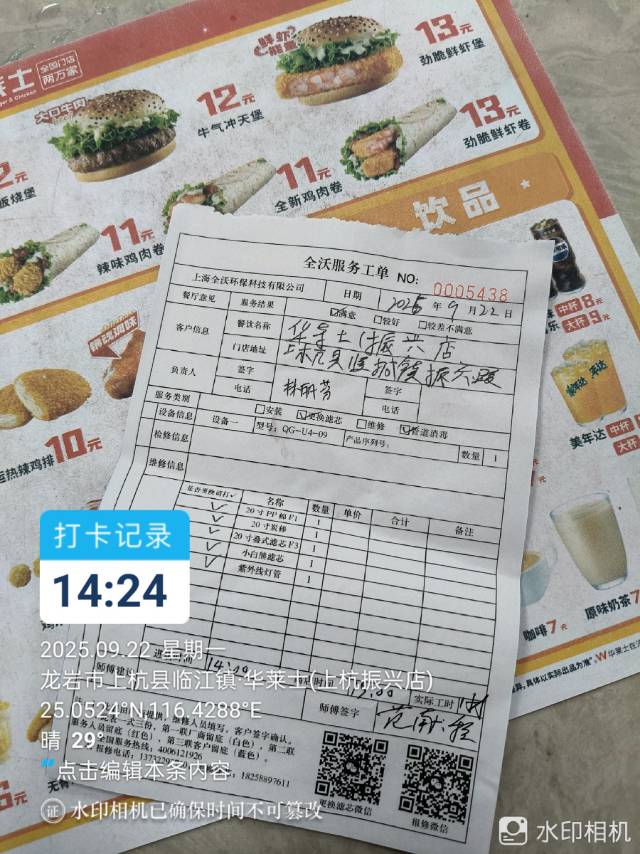 莱士
全国门店
两万家
大口牛肉
鲜虾
能量
12元
牛气冲天堡
13元
劲脆鲜虾堡
13元
劲脆鲜虾卷
11元
全新鸡肉卷
11元
辣味鸡肉卷
板烧堡
10元
热辣鸡排
饮品
中杯8元
大杯9元
美年达
中杯
大杯
咖啡7元
原味奶茶7
全沃服务工单 NO: 0005438
上海全沃环保科技有限公司 日期 2025年9月22日
餐厅意见 服务结果 满意 较好 较差不满意
客户信息 餐饮名称 华莱士(振兴店
门店地址 上杭县临城镇振兴路
负责人 签字 林丽芳 签字
电话 电话
服务类别 安装 更换滤芯 维修 管道消毒
设备信息 设备一 型号: QG-U4-09 产品序列号: 数量 1
检修信息
维修信息
是否更换请打√ 名称 数量 单价 合计 备注
√ 20寸PP棉F1 1
√ 20寸炭棒 1
√ 20寸叠式滤芯F3 1
√ 小白熊滤芯 1
√ 紫外线灯管 1
时间 14:00 实际工时
师傅建议 师傅签字
一式三份,第一联厂商留底(白色),第二联
服务人员留底(红色),第三联客户留底(蓝色)。
全国服务热线: 4006121926
18258897611
更换滤芯微信
报修微信
打卡记录
14:24
2025.09.22 星期一
龙岩市上杭县临江镇·华莱士(上杭振兴店)
25.0524°N,116.4288°E
晴 29°
点击编辑本条内容
证 水印相机已确保时间不可篡改
水印相机